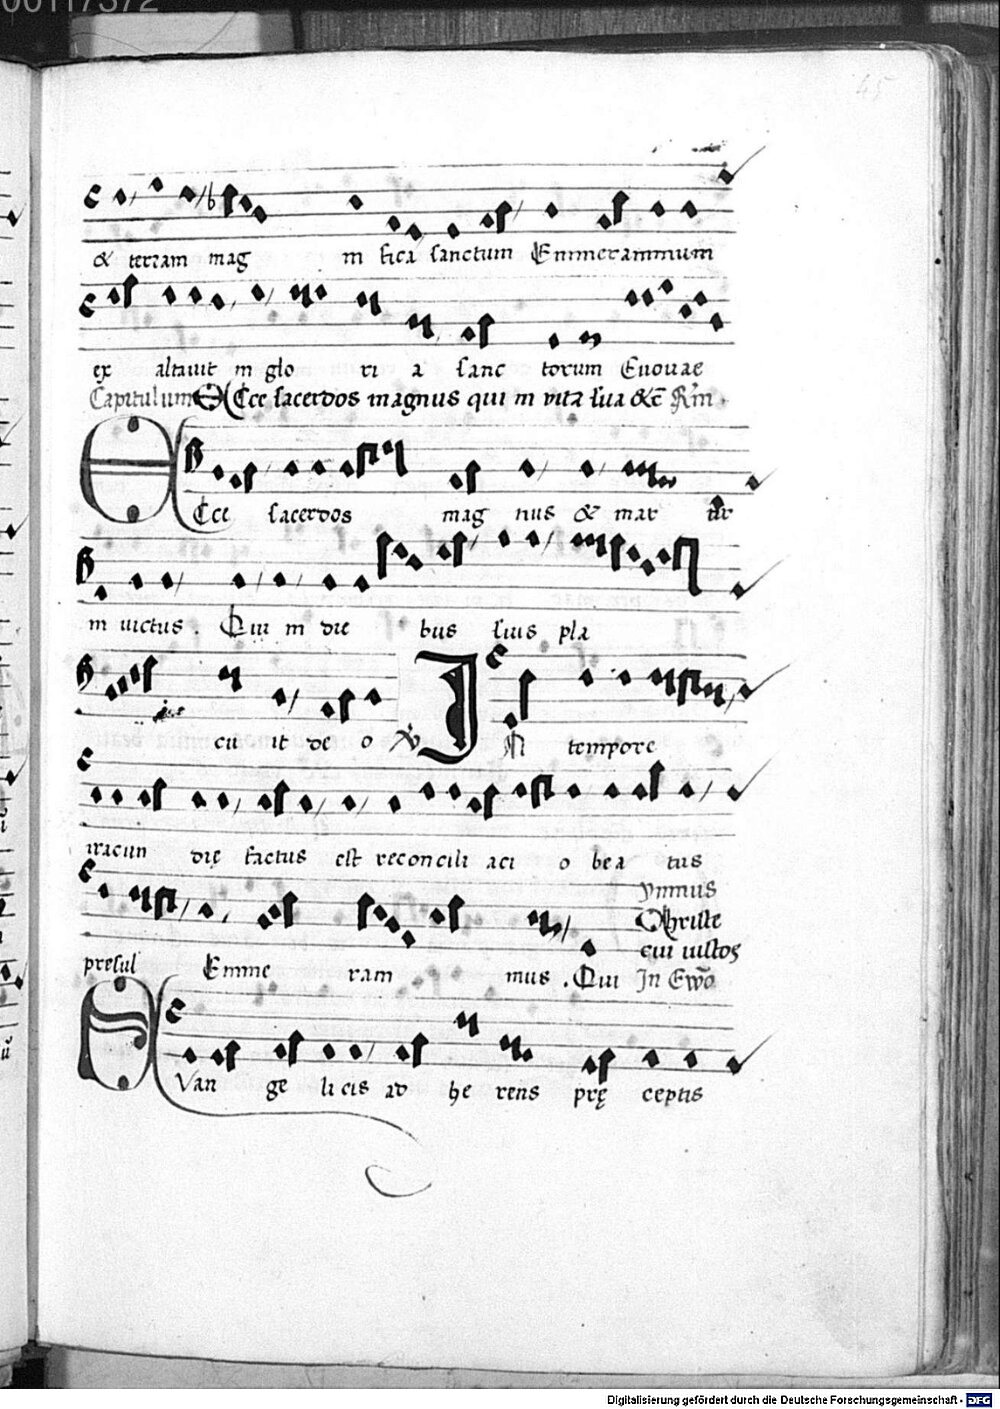 00117372
45
& terram mag ni fica sanctum Emmerammum
ex altauit in glo ri a sanc torum Euouae
Capitulum Ecce sacerdos magnus qui in vita sua &c̄ R̄m̄.
Ecce sacerdos mag nus & mar tir
in uictus . Qui in die bus suis pla
cu it de o . In tempore
iracun dię factus est reconcili aci o bea tus
presul Emme ram mus . Qui
ymnus
Christe
cui iustos
In Ewō
Evan ge licis ad he rens prę ceptis
Digitalisierung gefördert durch die Deutsche Forschungsgemeinschaft - DFG